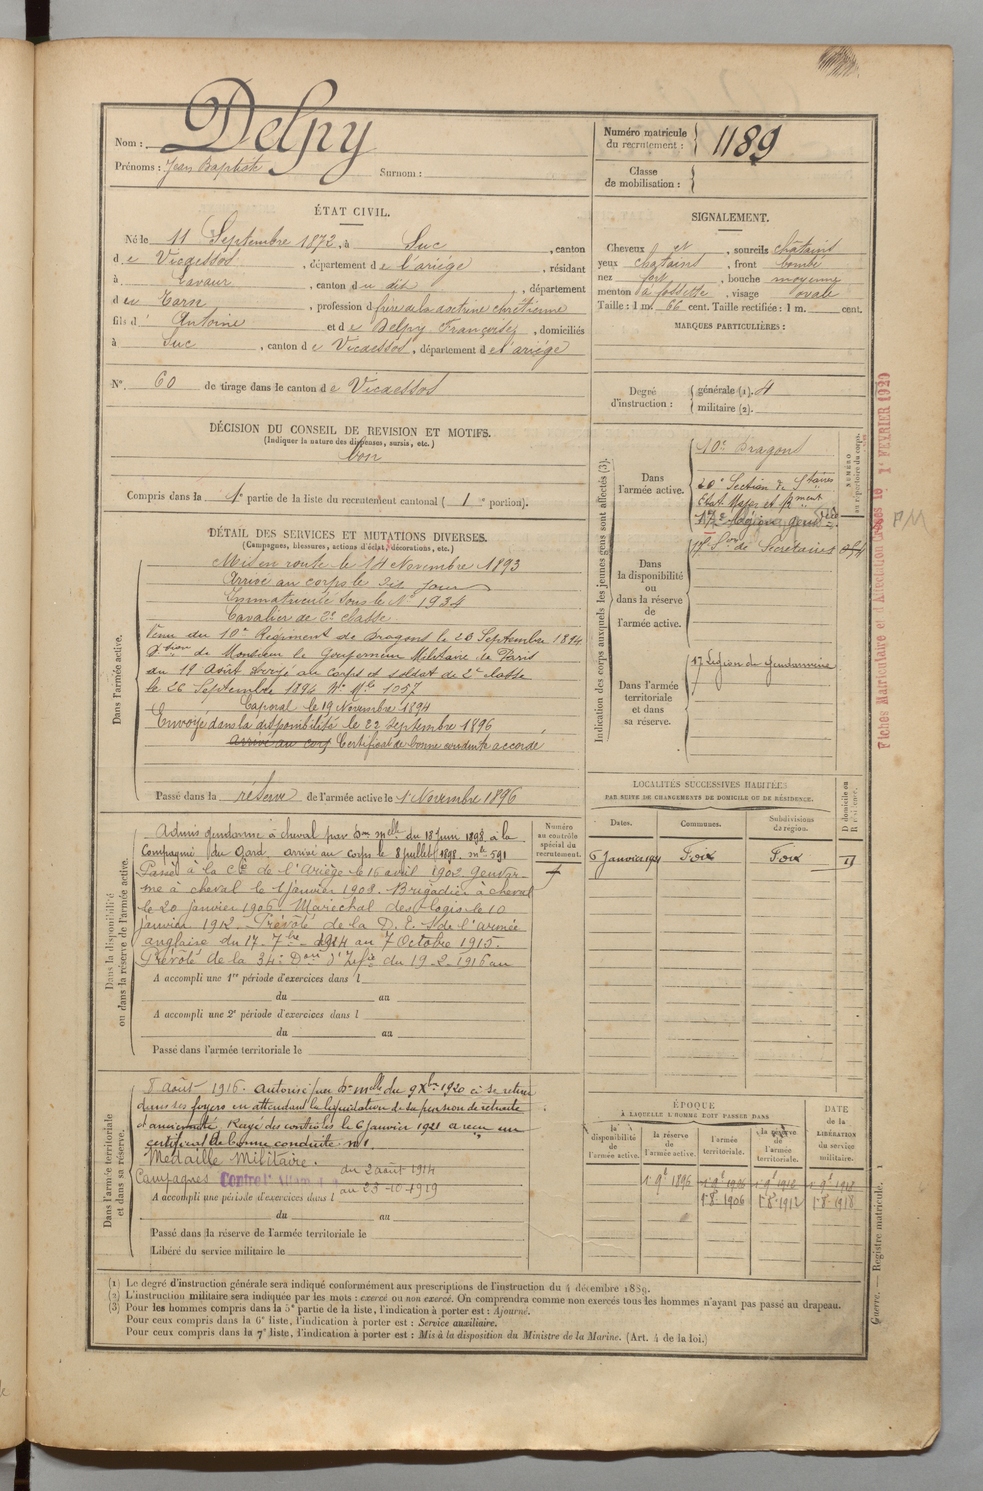 Nom : Delpy
Prénoms : Jean Baptiste Surnom :
Numéro matricule du recrutement : 1189
Classe de mobilisation :
ÉTAT CIVIL.
Né le 11 Septembre 1872, à Suc, canton
de Vicdessos, département de l'ariège, résidant
à Lavaur, canton du dit, département
du Tarn, profession d frère de la doctrine chrétienne
fils d' Antoine et de Delpy Françoise, domiciliés
à Suc, canton de Vicdessos, département de l'ariège
N° 60 de tirage dans le canton de Vicdessos
SIGNALEMENT.
Cheveux et, sourcils châtains
yeux châtains, front bombé
nez fort, bouche moyenne
menton à fossette, visage ovale
Taille : 1 m. 66 cent. Taille rectifiée : 1 m. cent.
MARQUES PARTICULIÈRES :
Degré d'instruction : générale (1). 4
militaire (2).
DÉCISION DU CONSEIL DE REVISION ET MOTIFS.
(Indiquer la nature des dispenses, sursis, etc.)
bon
Compris dans la 1e partie de la liste du recrutement cantonal ( 1 e portion).
DÉTAIL DES SERVICES ET MUTATIONS DIVERSES.
(Campagnes, blessures, actions d'éclat, décorations, etc.)
Dans l'armée active.
Mis en route le 14 Novembre 1893
Arrivé au corps le dit jour
Immatriculé sous le N° 1934
Cavalier de 2e classe
Venu du 10e Régiment de Dragons le 23 Septembre 1894
de Monsieur le Gouverneur Militaire de Paris
du 11 Août dirigé au Corps et soldat de 2e classe
le 26 Septembre 1894 N° Mle 1057
Caporal le 19 Novembre 1894
Envoyé dans la disponibilité le 22 septembre 1896
Arrivé au corps Certificat de bonne conduite accordé
Passé dans la réserve de l'armée active le 1 Novembre 1896
Indication des corps auxquels les jeunes gens sont affectés (3).
NUMÉRO au répertoire du corps.
Dans l'armée active.
10e Dragons
20e Section de Staires
Etat Major et Rment
17e Légion gend
Dans la disponibilité ou dans la réserve de l'armée active.
17e Son de Secrétaires
Dans l'armée territoriale et dans sa réserve.
17 Légion de Gendarmerie
Fiches Matriculaire et d'Affectation Closes le 1er FÉVRIER 1929
LOCALITÉS SUCCESSIVES HABITÉES
PAR SUITE DE CHANGEMENTS DE DOMICILE OU DE RÉSIDENCE.
D domicile ou R résidence.
Dates. Communes. Subdivisions de région.
6 janvier 1921 Foix Foix D
Dans la disponibilité ou dans la réserve de l'armée active.
Numéro au contrôle spécial du recrutement.
Admis gendarme à cheval par Don melle du 18 Juin 1898 à la
Compagnie du Gard arrivé au corps le 8 Juillet 1898 mle 591
Passé à la Cie de l'Ariège le 16 avril 1902 Gendar-
me à cheval le 1 janvier 1903. Brigadier à cheval
le 20 janvier 1906. Maréchal des logis le 10
janvier 1912. Prévôté de la D. E. S. de l'armée
anglaise du 17 7bre 1914 au 7 Octobre 1915.
Prévôté de la 34e Don d'Infie du 19.2.1916 au
A accompli une 1re période d'exercices dans l
du au
A accompli une 2e période d'exercices dans l
du au
Passé dans l'armée territoriale le
Dans l'armée territoriale et dans sa réserve.
8 Août 1916. Autorisé par Don melle du 9 Xbre 1920 à se retirer
dans ses foyers en attendant la liquidation de sa pension de retraite
d'ancienneté. Rayé des contrôles le 6 janvier 1921 a reçu un
certificat de bonne conduite. n° 1
Médaille Militaire.
Campagnes Contre l'Allemagne du 2 août 1914
au 23-10-1919
A accompli une période d'exercices dans l
du au
Passé dans la réserve de l'armée territoriale le
Libéré du service militaire le
ÉPOQUE
À LAQUELLE L'HOMME DOIT PASSER DANS
DATE de la LIBÉRATION du service militaire.
la disponibilité de l'armée active. la réserve de l'armée active. l'armée territoriale. la réserve de l'armée territoriale.
1 9e 1896 1 9e 1906 1 9e 1912 1 9e 1918
1 8e 1906 1 8e 1912 1 8e 1918
(1) Le degré d'instruction générale sera indiqué conformément aux prescriptions de l'instruction du 4 décembre 1889.
(2) L'instruction militaire sera indiquée par les mots : exercé ou non exercé. On comprendra comme non exercés tous les hommes n'ayant pas passé au drapeau.
(3) Pour les hommes compris dans la 5e partie de la liste, l'indication à porter est : Ajourné.
Pour ceux compris dans la 6e liste, l'indication à porter est : Service auxiliaire.
Pour ceux compris dans la 7e liste, l'indication à porter est : Mis à la disposition du Ministre de la Marine. (Art. 4 de la loi.)
Guerre. — Registre matricule. 1